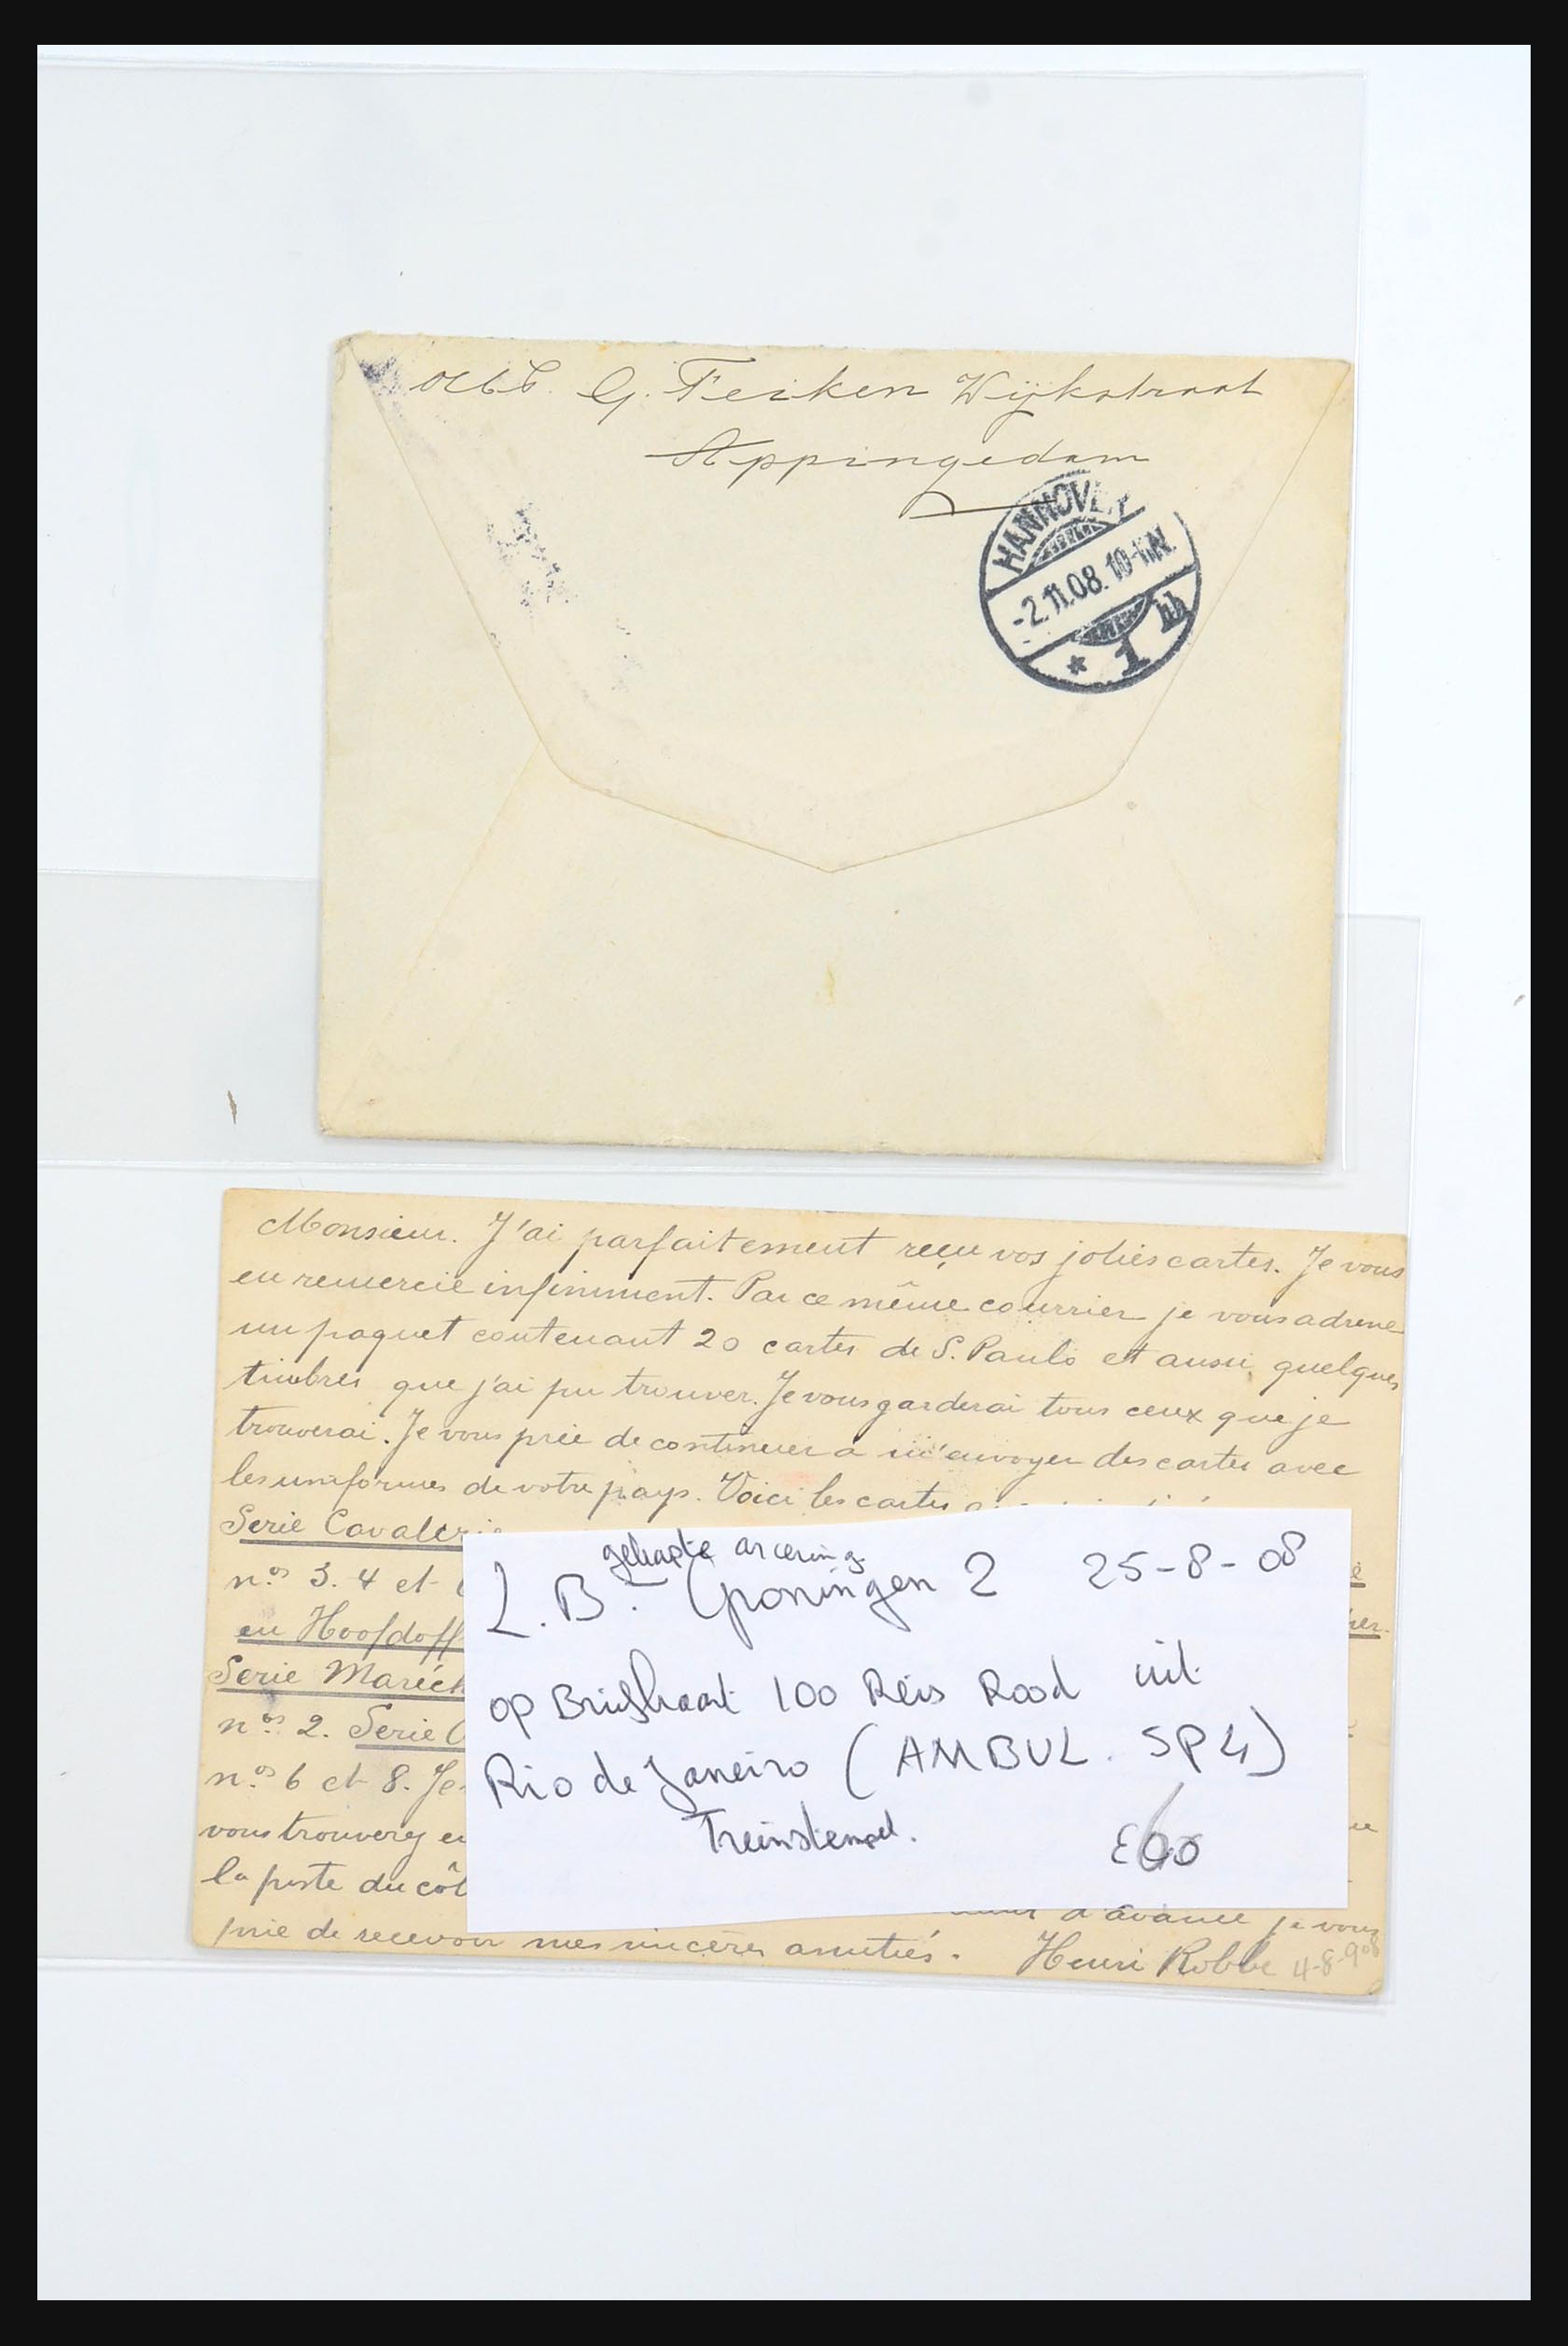 G. Feiken Wijkstraat
Appingedam
HANNOVER
-2.11.08.10-11N.
* 1
Monsieur. J'ai parfaitement reçu vos jolies cartes. Je vous
en remercie infiniment. Par ce même courrier je vous adresse
un paquet contenant 20 cartes de S. Paulo et aussi quelques
timbres que j'ai pu trouver. Je vous garderai tous ceux que je
trouverai. Je vous prie de continuer à m'envoyer des cartes avec
les uniformes de votre pays. Voici les cartes
Serie Cavalerie
n.os 3. 4 et
en Hoofdoff
Serie Maréch
n.os 2. Serie
n.os 6 et 8. Je
vous trouverez en
la poste du côt
d'avance je vous
prie de recevoir mes sincères amitiés. Henri Robbe 4-8-908
gehaakte arcering
L.B. Groningen 2 25-8-08
op Briefkaart 100 Reis Rood uit
Rio de Janeiro (AMBUL. SP 4)
Treinstempel.